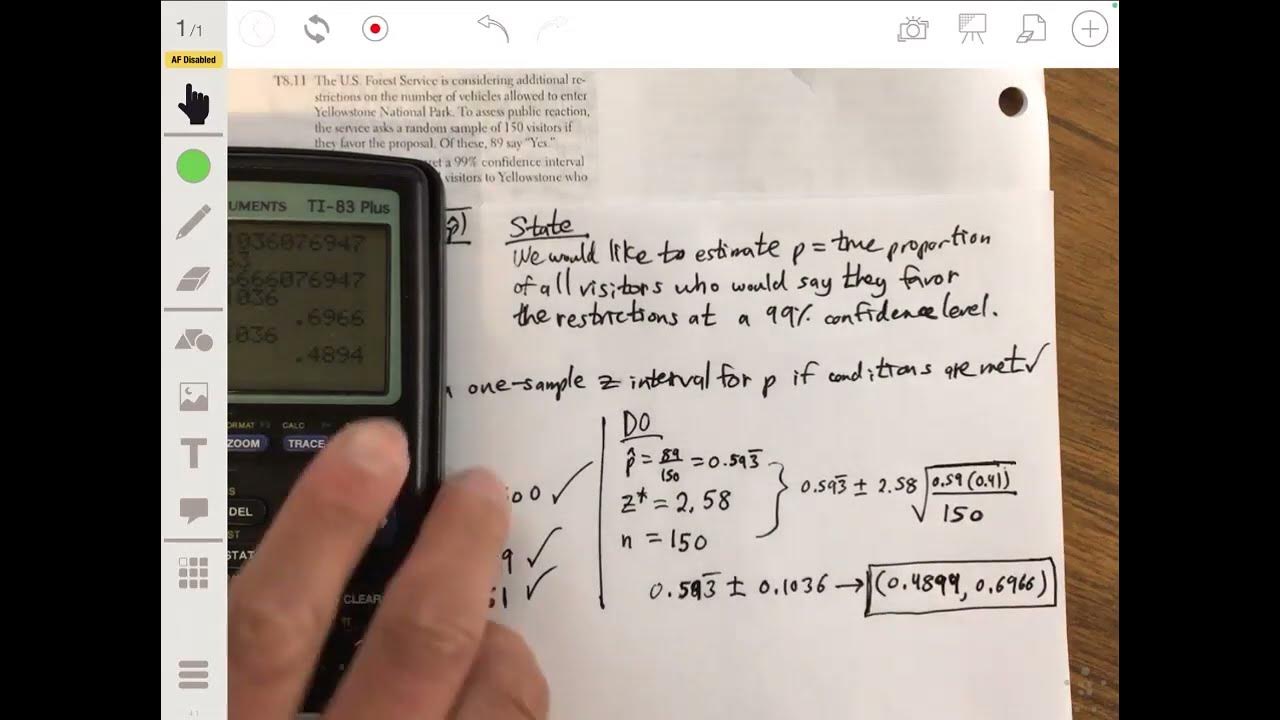 1/1
AF Disabled
T8.11 The U.S. Forest Service is considering additional re-
strictions on the number of vehicles allowed to enter
Yellowstone National Park. To assess public reaction,
the service asks a random sample of 150 visitors if
they favor the proposal. Of these, 89 say "Yes."
a 99% confidence interval
visitors to Yellowstone who
UMENTS TI-83 Plus
1036076947
6666076947
1036
.6966
1036
.4894
ZOOM TRACE
CALC
DEL
STAT
CLEAR
p̂)
State
We would like to estimate p = true proportion
of all visitors who would say they favor
the restrictions at a 99% confidence level.
one-sample z interval for p if conditions are met ✓
00 ✓
9 ✓
61 ✓
DO
p̂ = 89/150 = 0.593̅
z* = 2.58
n = 150
0.593̅ ± 2.58 √(0.59(0.41)/150)
0.593̅ ± 0.1036 → (0.4899, 0.6966)